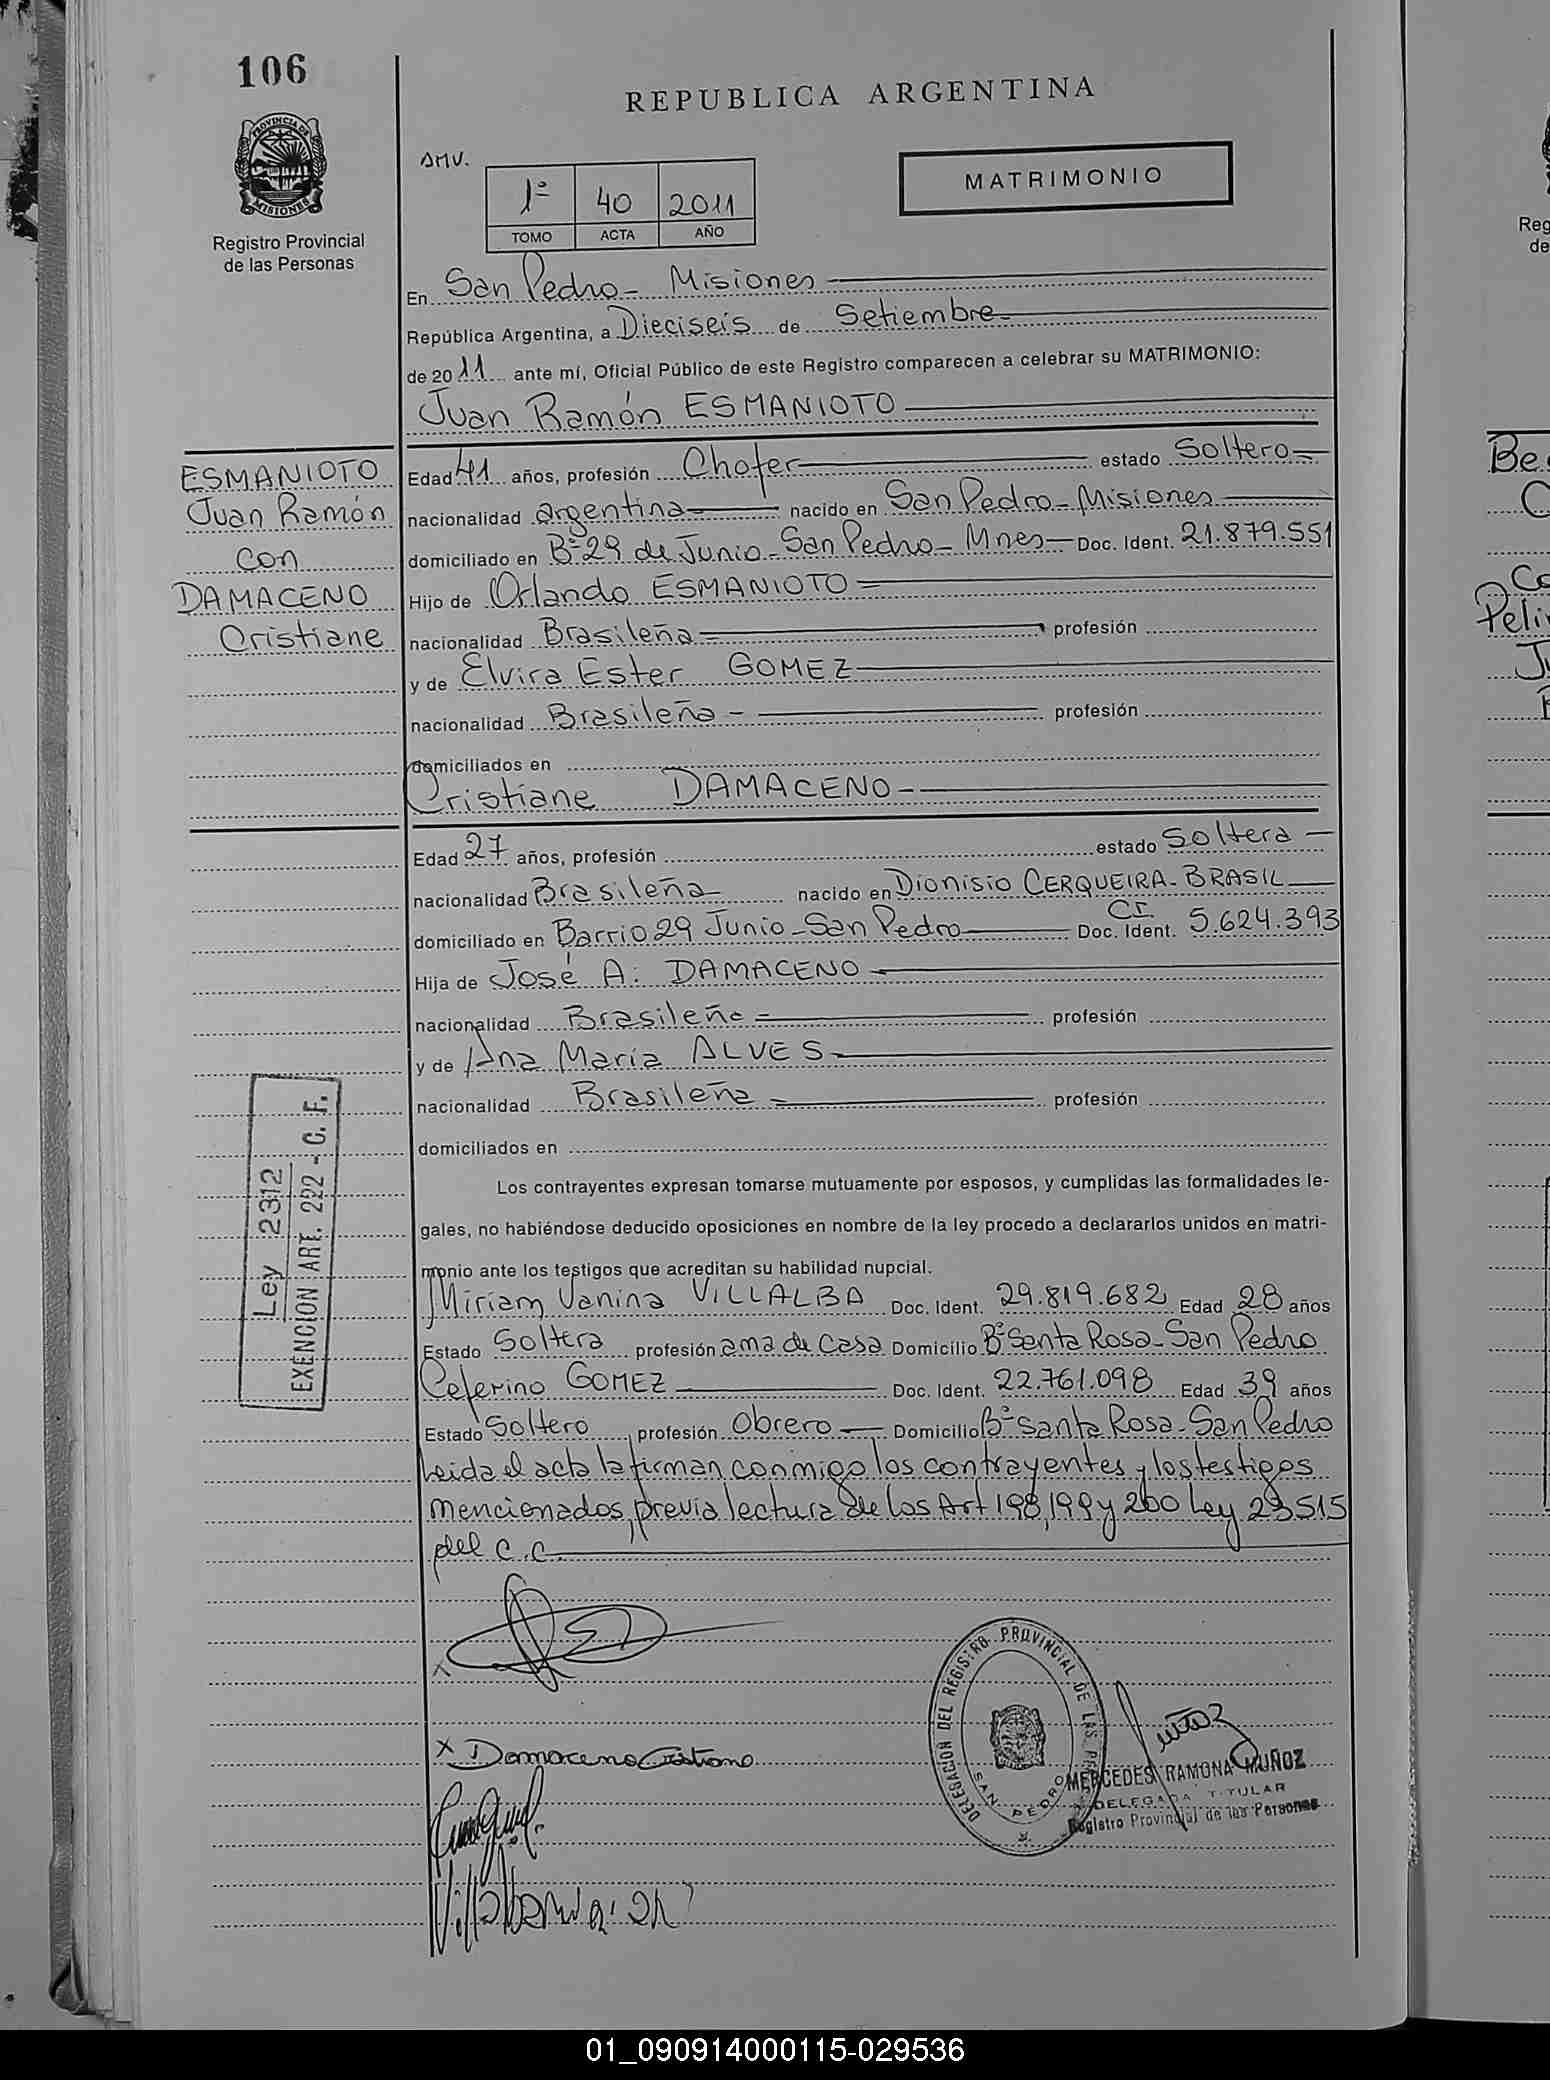 106
REPUBLICA ARGENTINA
PROVINCIA DE
MISIONES
Registro Provincial
de las Personas
DMV.
1º 40 2011
TOMO ACTA AÑO
MATRIMONIO
En San Pedro - Misiones
República Argentina, a Dieciseis de Setiembre
de 2011 ante mí, Oficial Público de este Registro comparecen a celebrar su MATRIMONIO:
Juan Ramón ESMANIOTO
ESMANIOTO
Juan Ramón
con
DAMACENO
Cristiane
Edad 41 años, profesión Chofer estado Soltero
nacionalidad argentina nacido en San Pedro - Misiones
domiciliado en Bº 29 de Junio - San Pedro - Mnes Doc. Ident. 21.879.551
Hijo de Orlando ESMANIOTO
nacionalidad Brasileña profesión
y de Elvira Ester GOMEZ
nacionalidad Brasileña - profesión
domiciliados en
Cristiane DAMACENO
Edad 27 años, profesión estado Soltera
nacionalidad Brasileña nacido en Dionisio CERQUEIRA - BRASIL
domiciliado en Barrio 29 Junio - San Pedro Doc. Ident. CI 5.624.393
Hija de José A: DAMACENO
nacionalidad Brasileña profesión
y de Ana María ALVES
nacionalidad Brasileña profesión
domiciliados en
Ley 2312
EXENCION ART. 222 - C. F.
Los contrayentes expresan tomarse mutuamente por esposos, y cumplidas las formalidades le-
gales, no habiéndose deducido oposiciones en nombre de la ley procedo a declararlos unidos en matri-
monio ante los testigos que acreditan su habilidad nupcial.
Miriam Vanina VILLALBA Doc. Ident. 29.819.682 Edad 28 años
Estado Soltera profesión ama de casa Domicilio Bº Santa Rosa - San Pedro
Ceferino GOMEZ Doc. Ident. 22.761.098 Edad 39 años
Estado Soltero profesión Obrero Domicilio Bº Santa Rosa - San Pedro
Leida el acta la firman conmigo los contrayentes y los testigos
mencionados, previa lectura de los Art 198, 199 y 200 Ley 23515
del C.C.
X
X Damaceno Cristiane
DELEGACION DEL REGISTRO PROVINCIAL DE LAS
SAN PEDRO
Muñoz
MERCEDES RAMONA MUÑOZ
DELEGADA TITULAR
Registro Provincial de las Personas
Reg
de
Be
C
Co
Peli
01_090914000115-029536